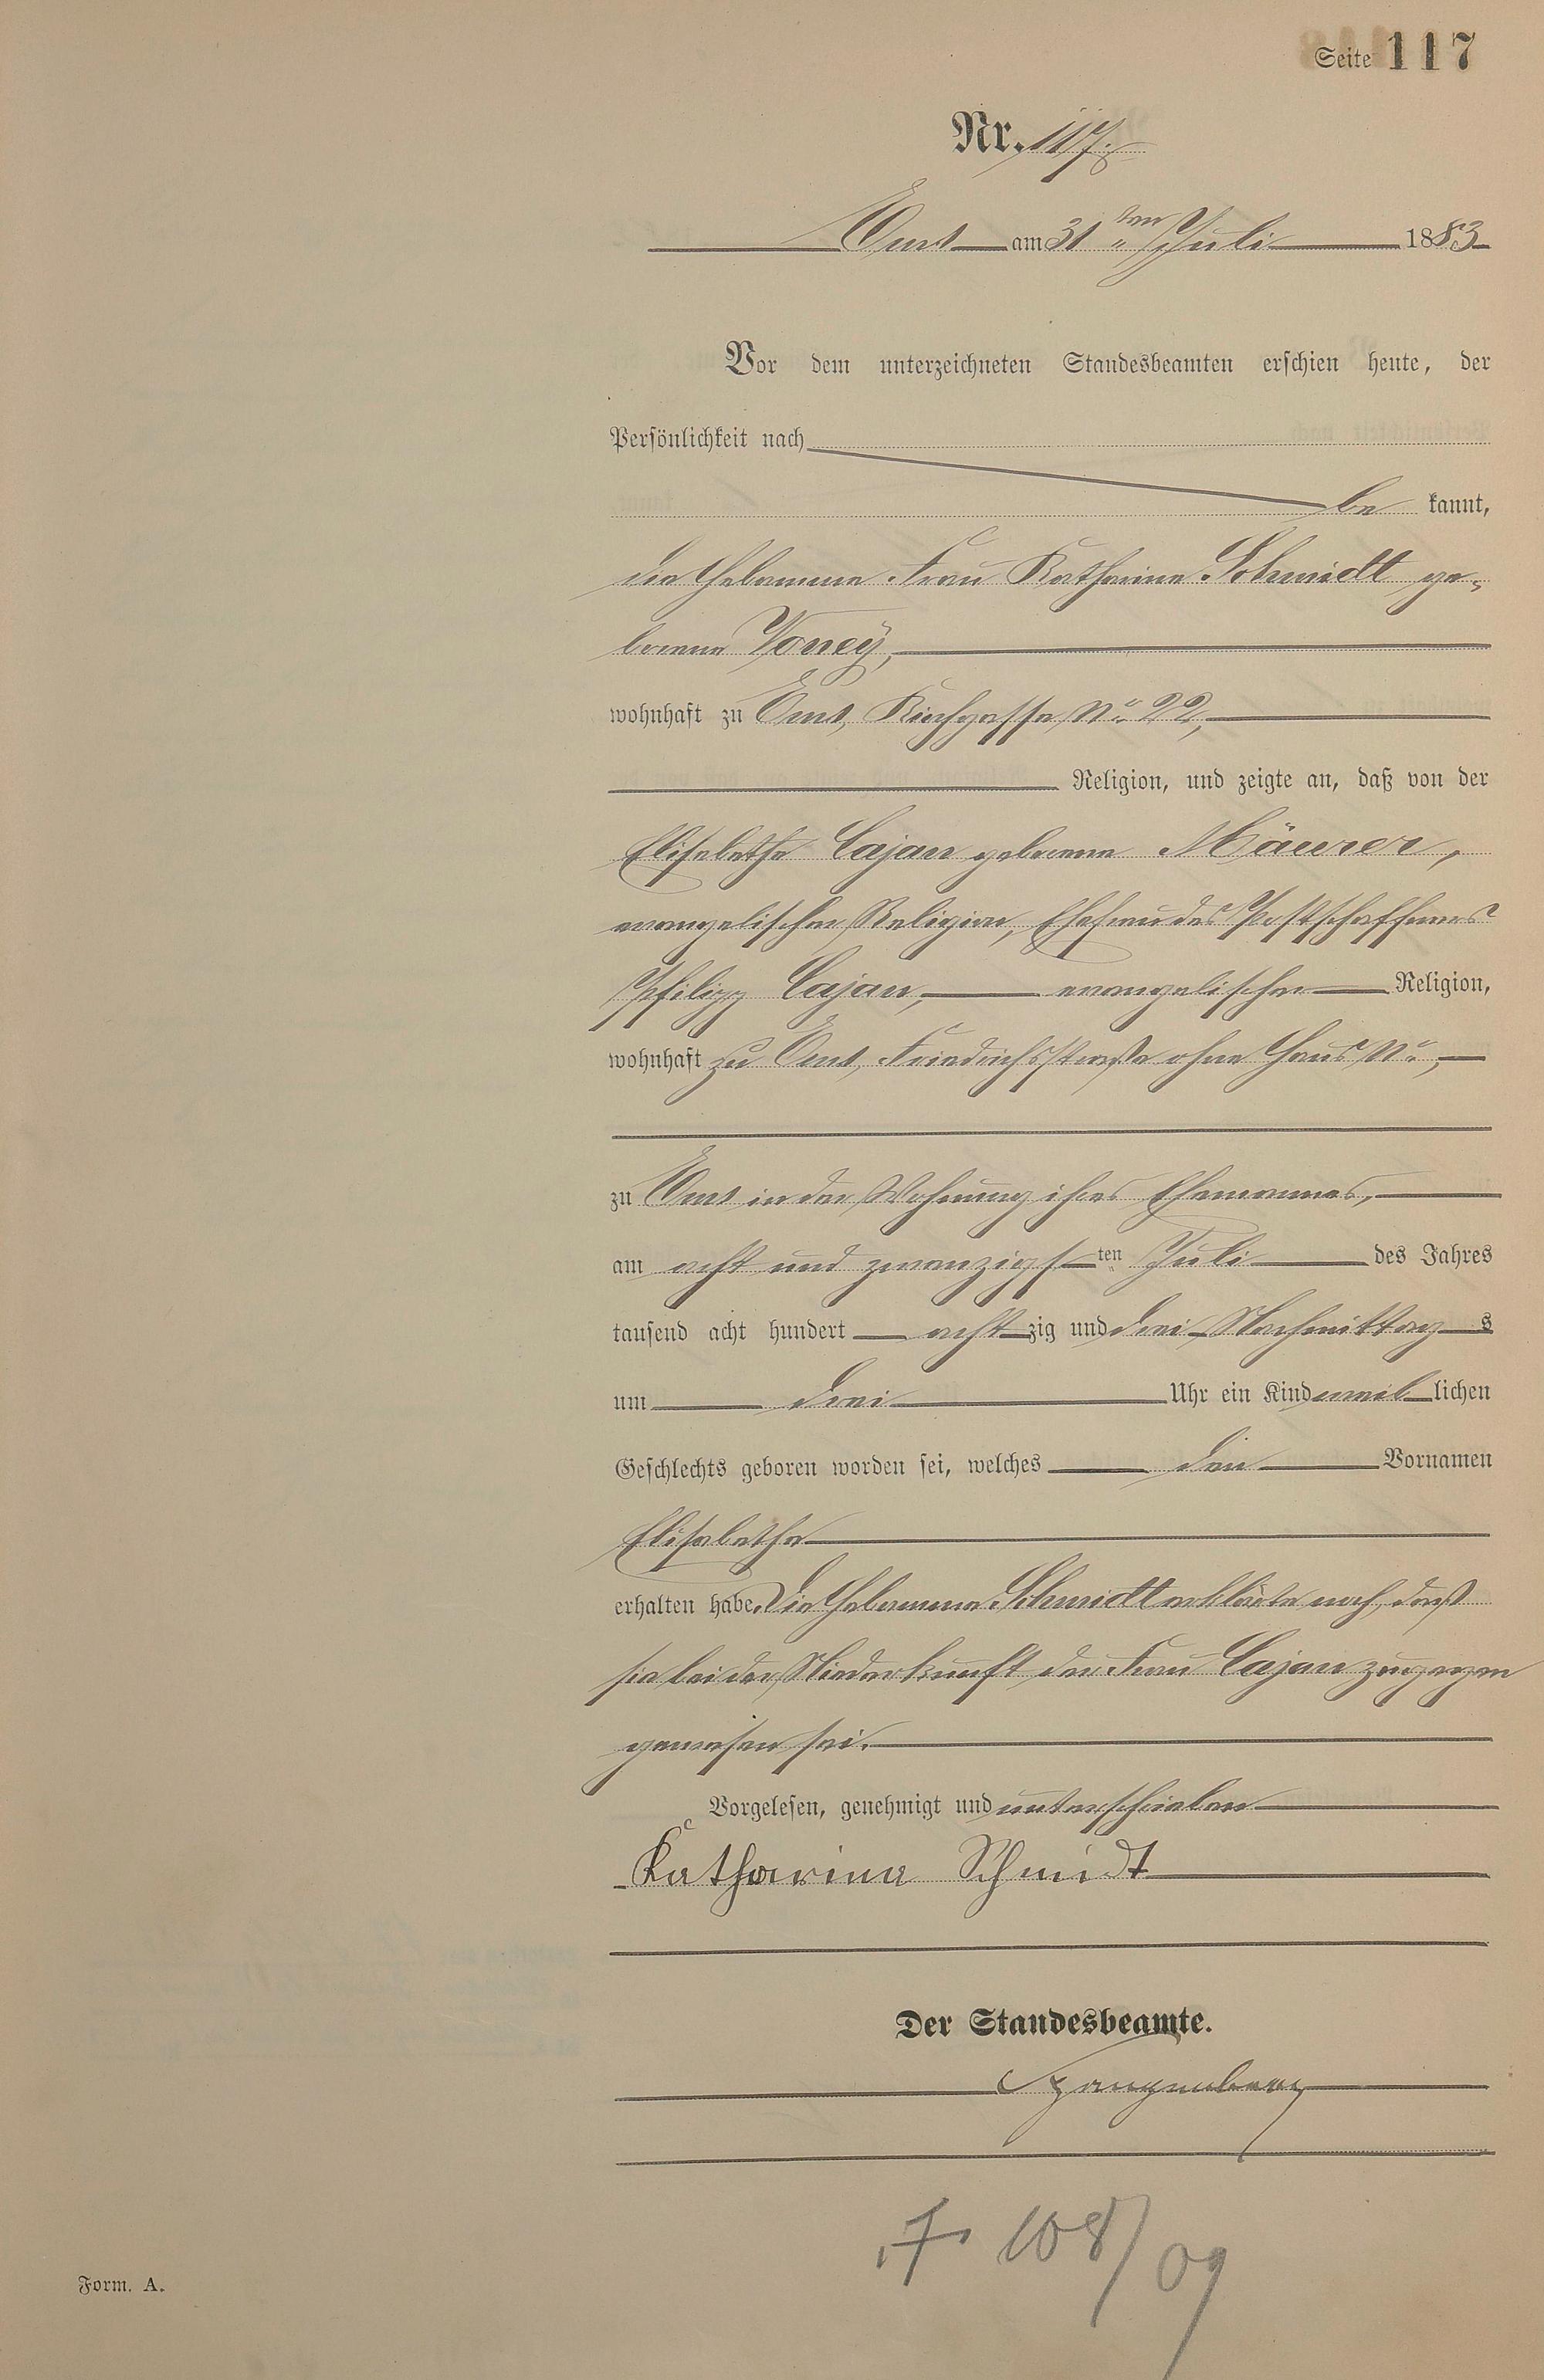 Seite 117
Nr. 117.
Ems am 31ten Juli 1883
Vor dem unterzeichneten Standesbeamten erschien heute, der
Persönlichkeit nach
be kannt,
die Hebamme Frau Katharina Schmidt ge-
borene Voney,
wohnhaft zu Ems, Kirchgasse No 22,
Religion, und zeigte an, daß von der
Elisabetha Cajan geborene Mäurer,
evangelischer Religion, Ehefrau des Postschaffners
Philipp Cajan, evangelischer Religion,
wohnhaft zu Ems, Friedrichsstraße ohne Haus No,
zu Ems in der Wohnung ihres Ehemannes,
am acht und zwanzigsten Juli des Jahres
tausend acht hundert achtzig und drei Nachmittags
um drei Uhr ein Kind weiblichen
Geschlechts geboren worden sei, welches den Vornamen
Elisabetha
erhalten habe. Die Hebamme Schmidt erklärte noch, daß
sie bei der Niederkunft der Frau Cajan zugegen
gewesen sei.
Vorgelesen, genehmigt und unterschrieben
Katharina Schmidt
Der Standesbeamte.
Spangenberg
F. 108/09
Form. A.